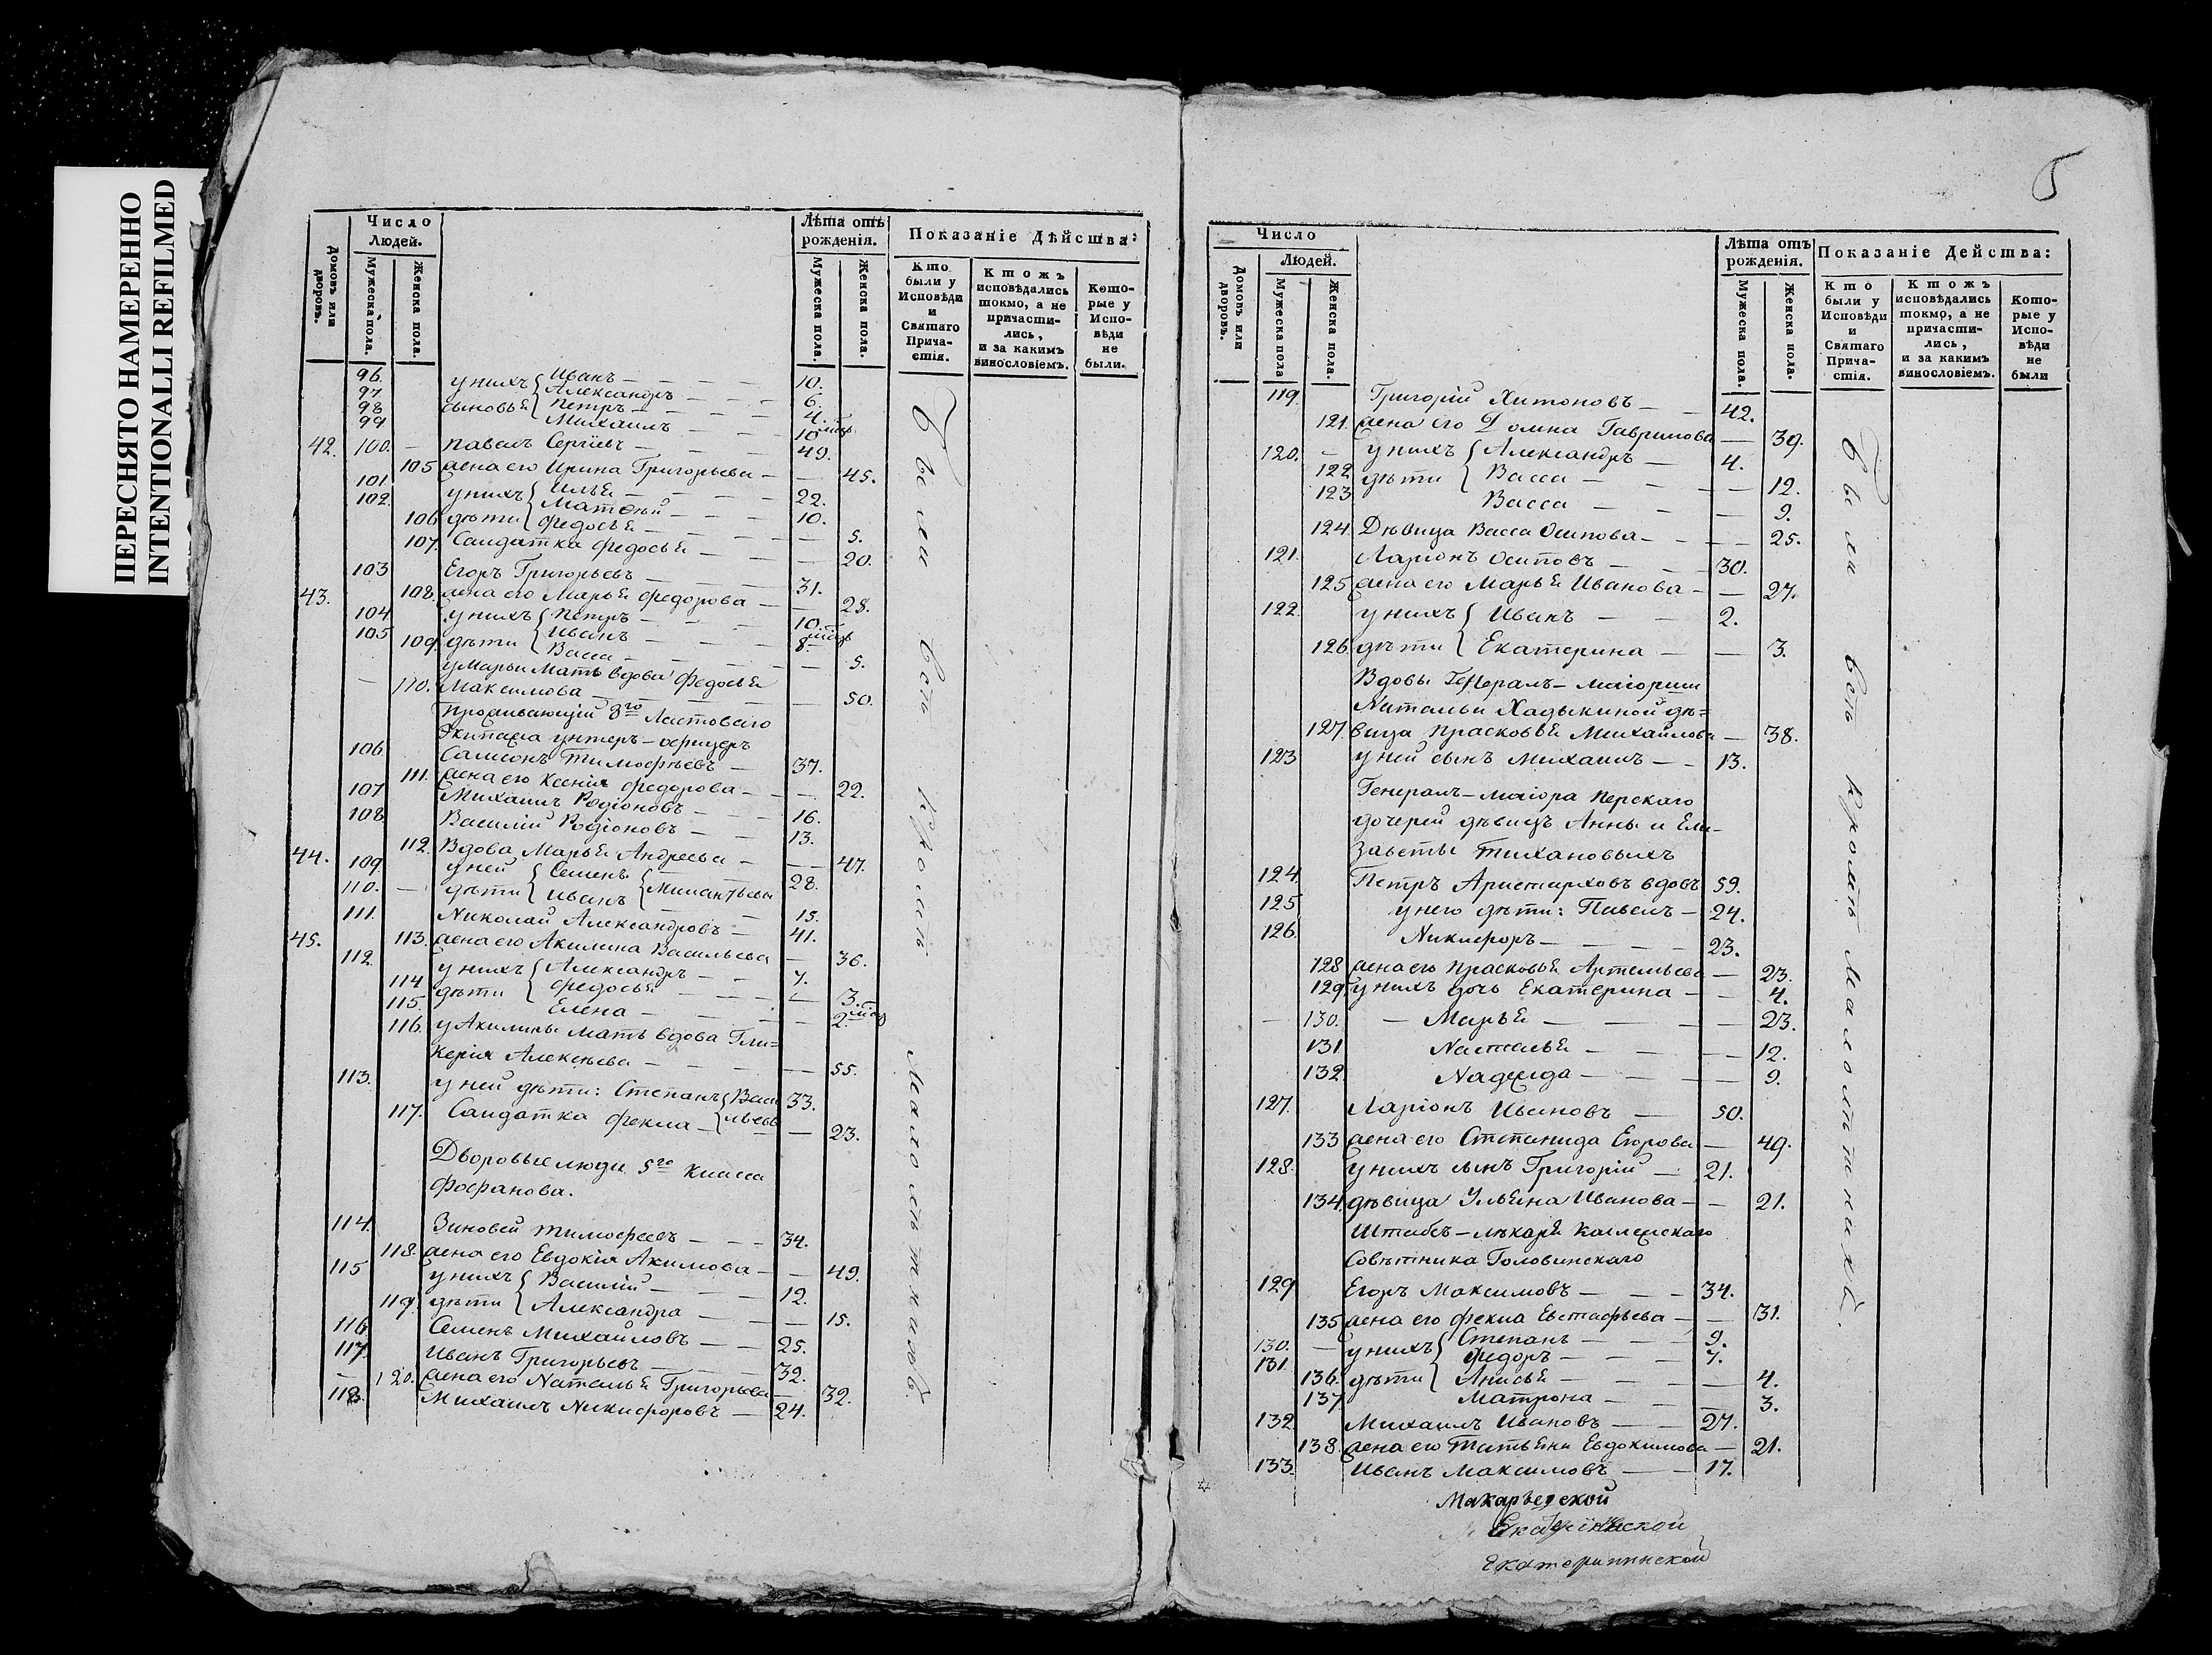 ПЕРЕСНЯТО НАМЕРЕННО
INTENTIONALLI REFILMED
Домовъ или дворовъ.
Число Людей.
Мужеска пола.
Женска пола.
Лѣта отъ рожденія.
Мужеска пола.
Женска пола.
Показаніе Дѣйства:
Кто были у Исповѣди и Святаго Прича-стія.
Ктожъ исповѣдались токмо, а не причасти-лись, и за какимъ винословіемъ.
Кото-рые у Испо-вѣди не были.
96. у нихъ Иванъ 10.
97 сыновья Александръ 6.
98 Петръ 4.
99 Михаилъ 10 мцъ
42. 100. Павелъ Сергѣевъ 49.
105 жена его Ирина Григорьева 45.
101 у нихъ Илья 22.
102. дѣти Матѳей 10.
106 Федосья 5.
107. Салдатка Федосья 20.
103 Егоръ Григорьевъ 31.
43. 108. жена его Марья Федорова 28.
104 у нихъ Петръ 10.
105 дѣти Иванъ 8 мцъ
109 Васса 5.
у Марьи мать вдова Федосья
110. Максимова 50.
Проживающій 8го Ластоваго
Экипажа унтеръ-офицеръ
106 Самсонъ Тимофѣевъ 37.
111. жена его Ксенія Федорова 22.
107 Михаилъ Родіоновъ 16.
108 Василій Родіоновъ 13.
44. 112. Вдова Марья Андреева 47.
109 у ней Семенъ 28.
110. дѣти Иванъ 15.
111. Николай Александровъ 41.
45. 113. жена его Акилина Васильева 36.
112. у нихъ Александръ 7.
114 дѣти Федосья 3.
115. Елена 2.
116. у Акилины мать вдова Гли=
керія Алексѣева 55.
113. у ней дѣти: Степанъ Васи 33.
117. Салдатка Фекла льевъ 23.
Дворовые люди 5го класса
Фофанова.
114. Зиновей Тимофеевъ 34.
118. жена его Евдокія Акимова 49.
115 у нихъ Василій 12.
119. дѣти Александра 15.
116. Семенъ Михайловъ 25.
117. Иванъ Григорьевъ 32.
120. жена его Наталья Григорьева 32.
118. Михаилъ Никифоровъ 24.
Были всѣ кромѣ малолѣтныхъ.
5
Домовъ или дворовъ.
Число Людей.
Мужеска пола
Женска пола.
Лѣта отъ рожденія.
Мужеска пола.
Женска пола.
Показаніе Действа:
Кто были у Исповѣди и Святаго Прича-стія.
Ктожъ исповѣдались токмо, а не причасти-лись, и за какимъ винословіемъ.
Кото-рые у Испо-вѣди не были
119. Григорій Хитоновъ 42.
121. жена его Домна Гаврилова 39.
120. у нихъ Александръ 4.
122 дѣти Васса 12.
123 Васса 9.
124. Дѣвица Васса Осипова 25.
121. Ларіонъ Осиповъ 30.
125 жена его Марья Иванова 27.
122. у нихъ Иванъ 2.
126. дѣти Екатерина 3.
Вдовы Генералъ-маіорши
Натальи Хадыкиной дѣ=
127. вица Прасковья Михайлова 38.
123 у ней сынъ Михаилъ 13.
Генералъ-маіора Перскаго
дочерей дѣвицъ Анны и Ели-
заветы Тихановыхъ
124 Петръ Аристарховъ вдовъ 59.
125 у него дѣти: Павелъ 24.
126. Никифоръ 23.
128 жена его Прасковья Артемьева 23.
129 у нихъ дочь Екатерина 4.
130. Марья 23.
131 Наталья 12.
132 Надежда 9.
127. Ларіонъ Ивановъ 50.
133 жена его Степанида Егорова 49.
128. у нихъ сынъ Григорій 21.
134. дѣвица Ульяна Иванова 21.
Штабсъ-лѣкаря Коллежскаго
Совѣтника Головинскаго
129 Егоръ Максимовъ 34.
135 жена его Фекла Евстафьева 31.
130. у нихъ Степанъ 9.
131. Федоръ 7.
136. дѣти Анисья 4.
137 Матрона 3.
132. Михаилъ Ивановъ 27.
138. жена его Татьяна Евдокимова 21.
133. Иванъ Максимовъ 17.
Были всѣ кромѣ малолѣтныхъ.
Макарьевской
Екатерининской